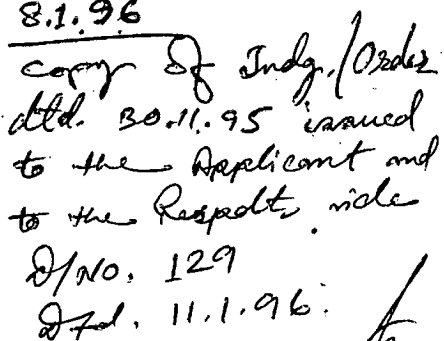 8.1.96
copy of Judg./Order
dtd. 30.11.95 issued
to the Applicant and
to the Respdts. vide
D/No. 129
Dtd. 11.1.96.